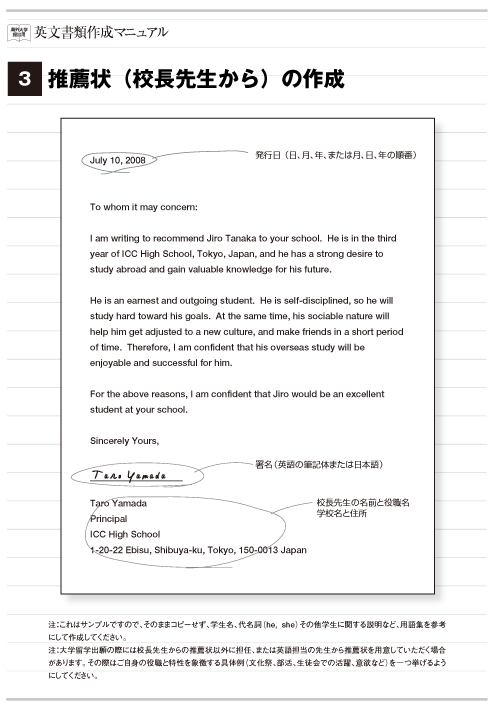 海外大学
願書用
英文書類作成マニュアル
3 推薦状（校長先生から）の作成
July 10, 2008
発行日（日、月、年、または月、日、年の順番）
To whom it may concern:
I am writing to recommend Jiro Tanaka to your school. He is in the third
year of ICC High School, Tokyo, Japan, and he has a strong desire to
study abroad and gain valuable knowledge for his future.
He is an earnest and outgoing student. He is self-disciplined, so he will
study hard toward his goals. At the same time, his sociable nature will
help him get adjusted to a new culture, and make friends in a short period
of time. Therefore, I am confident that his overseas study will be
enjoyable and successful for him.
For the above reasons, I am confident that Jiro would be an excellent
student at your school.
Sincerely Yours,
署名（英語の筆記体または日本語）
Taro Yamada
Taro Yamada
校長先生の名前と役職名
学校名と住所
Principal
ICC High School
1-20-22 Ebisu, Shibuya-ku, Tokyo, 150-0013 Japan
注：これはサンプルですので、そのままコピーせず、学生名、代名詞（he, she）その他学生に関する説明など、用語集を参考
にして作成してください。
注：大学留学出願の際には校長先生からの推薦状以外に担任、または英語担当の先生から推薦状を用意していただく場合
があります。その際はご自身の役職と特性を象徴する具体例（文化祭、部活、生徒会での活躍、意欲など）を一つ挙げるよう
にしてください。